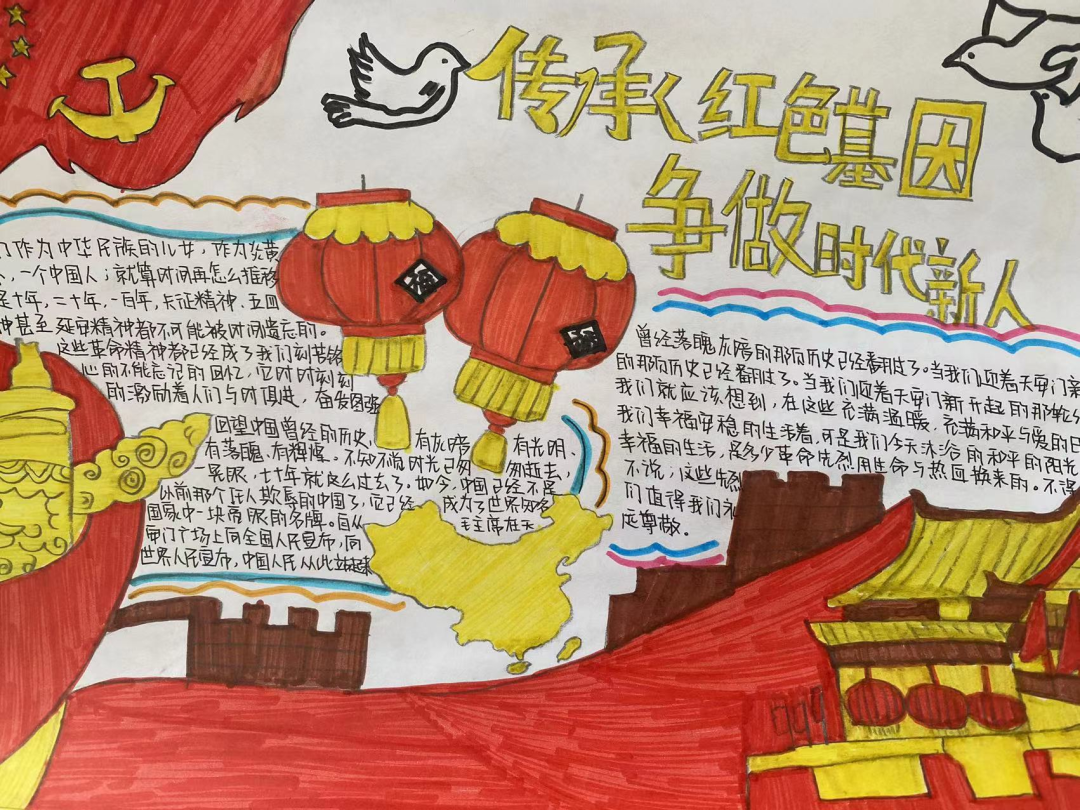 传承红色基因
争做时代新人
作为中华民族的儿女，作为炎黄
一个中国人；就算时间再怎么推移
是十年，二十年，一百年，长征精神，五四
神甚至延安精神都不可能被时间遗忘的。
这些革命精神都已经成了我们刻苦铭
心的不能忘记的回忆，它时时刻刻
的激励着人们与时俱进，奋发图强
回望中国曾经的历史，有灰暗，有光明，
有落魄，有辉煌。不知不觉时光已匆匆逝去，
一晃眼，七十年就这么过去了。如今，中国已经不是
以前那个任人欺辱的中国了，它已经成为了世界知名
国家中一块亮眼的名牌。自从毛主席在天
安门广场上向全国人民宣布，向
世界人民宣布，中国人民从此站起来
曾经落魄灰暗的那页历史已经翻过了。当我们迎着天安门新
的那页历史已经翻过了。当我们迎着天安门新升起的那轮
我们就应该想到，在这些充满温暖，充满和平与爱的日
我们幸福安稳的生活着，可是我们今天沐浴的和平的阳光
幸福的生活，是多少革命先烈用生命与热血换来的。不得
不说，这些先烈
们值得我们永
远尊敬。